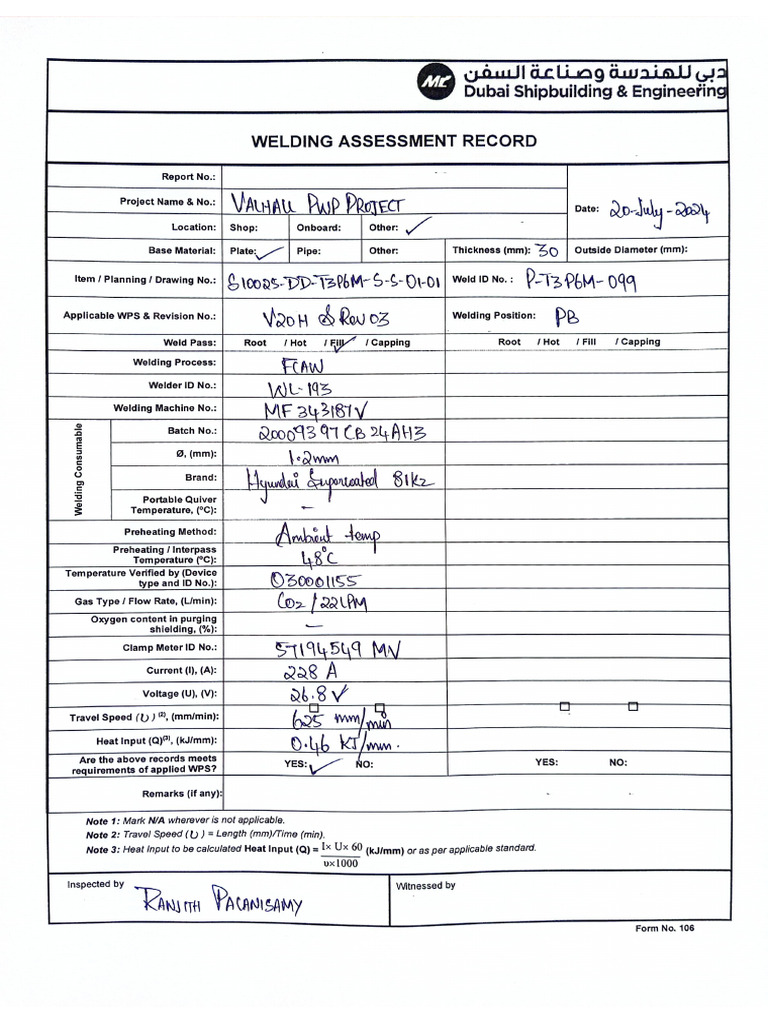 دبي للهندسة وصناعة السفن
MC Dubai Shipbuilding & Engineering
WELDING ASSESSMENT RECORD
Report No.:
Project Name & No.: VALHALL PWP PROJECT
Date: 20-July-2024
Location: Shop: Onboard: Other: ✓
Base Material: Plate: ✓ Pipe: Other: Thickness (mm): 30 Outside Diameter (mm):
Item / Planning / Drawing No.: S10025-DD-T3P6M-S-S-01-01 Weld ID No. : P-T3P6M-099
Applicable WPS & Revision No.: V20H & Rev 03 Welding Position: PB
Weld Pass: Root / Hot / Fill ✓ / Capping Root / Hot / Fill / Capping
Welding Process: FCAW
Welder ID No.: WL-193
Welding Machine No.: MF343187V
Welding Consumable
Batch No.: 20009397CB24AH3
Ø, (mm): 1.2mm
Brand: Hyundai Supercoated 81K2
Portable Quiver Temperature, (ºC): –
Preheating Method: Ambient temp
Preheating / Interpass Temperature (ºC): 48°C
Temperature Verified by (Device type and ID No.): 030001155
Gas Type / Flow Rate, (L/min): CO2/22LPM
Oxygen content in purging shielding, (%): –
Clamp Meter ID No.: 57194549 MV
Current (I), (A): 228 A
Voltage (U), (V): 26.8 V
Travel Speed (υ) (2), (mm/min): 625 mm/min
Heat Input (Q)(3), (kJ/mm): 0.46 KJ/mm.
Are the above records meets requirements of applied WPS? YES: ✓ NO: YES: NO:
Remarks (if any):
Note 1: Mark N/A wherever is not applicable.
Note 2: Travel Speed (υ) = Length (mm)/Time (min).
Note 3: Heat Input to be calculated Heat Input (Q) = I× U× 60 / υ×1000 (kJ/mm) or as per applicable standard.
Inspected by RANJITH PALANISAMY
Witnessed by
Form No. 106